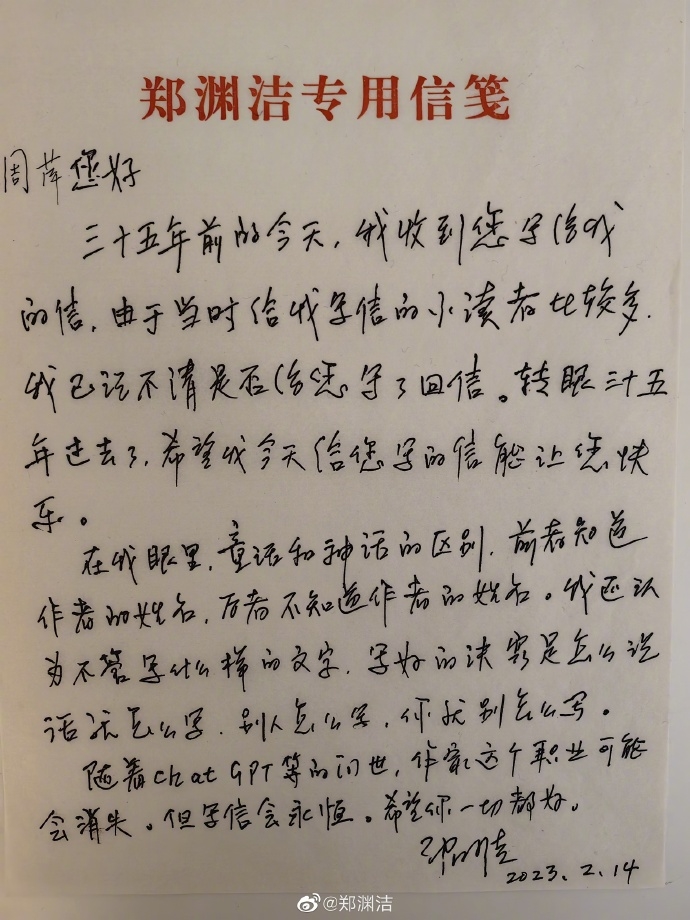 郑渊洁专用信笺
周萍您好
三十五年前的今天，我收到您写给我
的信，由于当时给我写信的小读者比较多，
我已记不清是否给您写了回信。转眼三十五
年过去了，希望我今天给您写的信能让您快
乐。
在我眼里，童话和神话的区别，前者知道
作者的姓名，后者不知道作者的姓名。我还认
为不管写什么样的文字，写好的诀窍是怎么说
话就怎么写，别人怎么写，你就别怎么写。
随着chat GPT等的问世，作家这个职业可能
会消失。但写信会永恒。希望你一切都好。
郑渊洁
2023.2.14
@郑渊洁